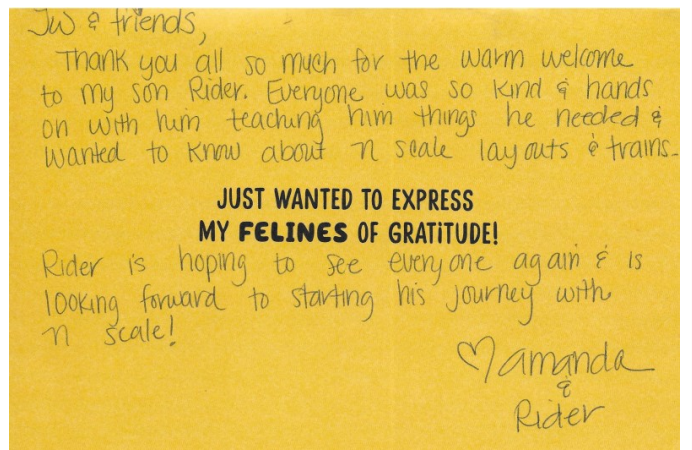 JW & friends,
Thank you all so much for the warm welcome
to my son Rider. Everyone was so kind & hands
on with him teaching him things he needed &
wanted to know about n scale layouts & trains.
JUST WANTED TO EXPRESS
MY FELINES OF GRATITUDE!
Rider is hoping to see everyone again & is
looking forward to starting his journey with
n scale!
♡ amanda
&
Rider